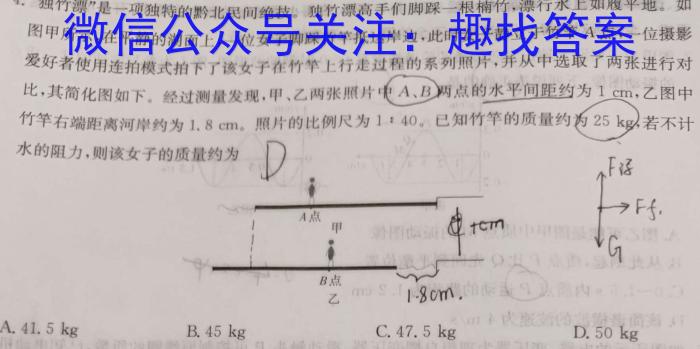 “独竹漂”是一项独特的黔北民间绝技。独竹漂高手们脚踩一根楠竹,漂行水上如履平地。如
图甲所示,在平静的湖面上,一位女子脚踩竹竿抵达岸边,此时女子静立于竹竿A点,一位摄影
微信公众号关注:趣找答案
爱好者使用连拍模式拍下了该女子在竹竿上行走过程的系列照片,并从中选取了两张进行对
比,其简化图如下。经过测量发现,甲、乙两张照片中A、B两点的水平间距约为1 cm,乙图中
竹竿右端距离河岸约为1.8 cm。照片的比例尺为1:40。已知竹竿的质量约为25 kg,若不计
水的阻力,则该女子的质量约为
D
A点
甲
1cm
B点
乙
1.8cm.
F浮
Ff.
G
A. 41.5 kg
B. 45 kg
C. 47.5 kg
D. 50 kg